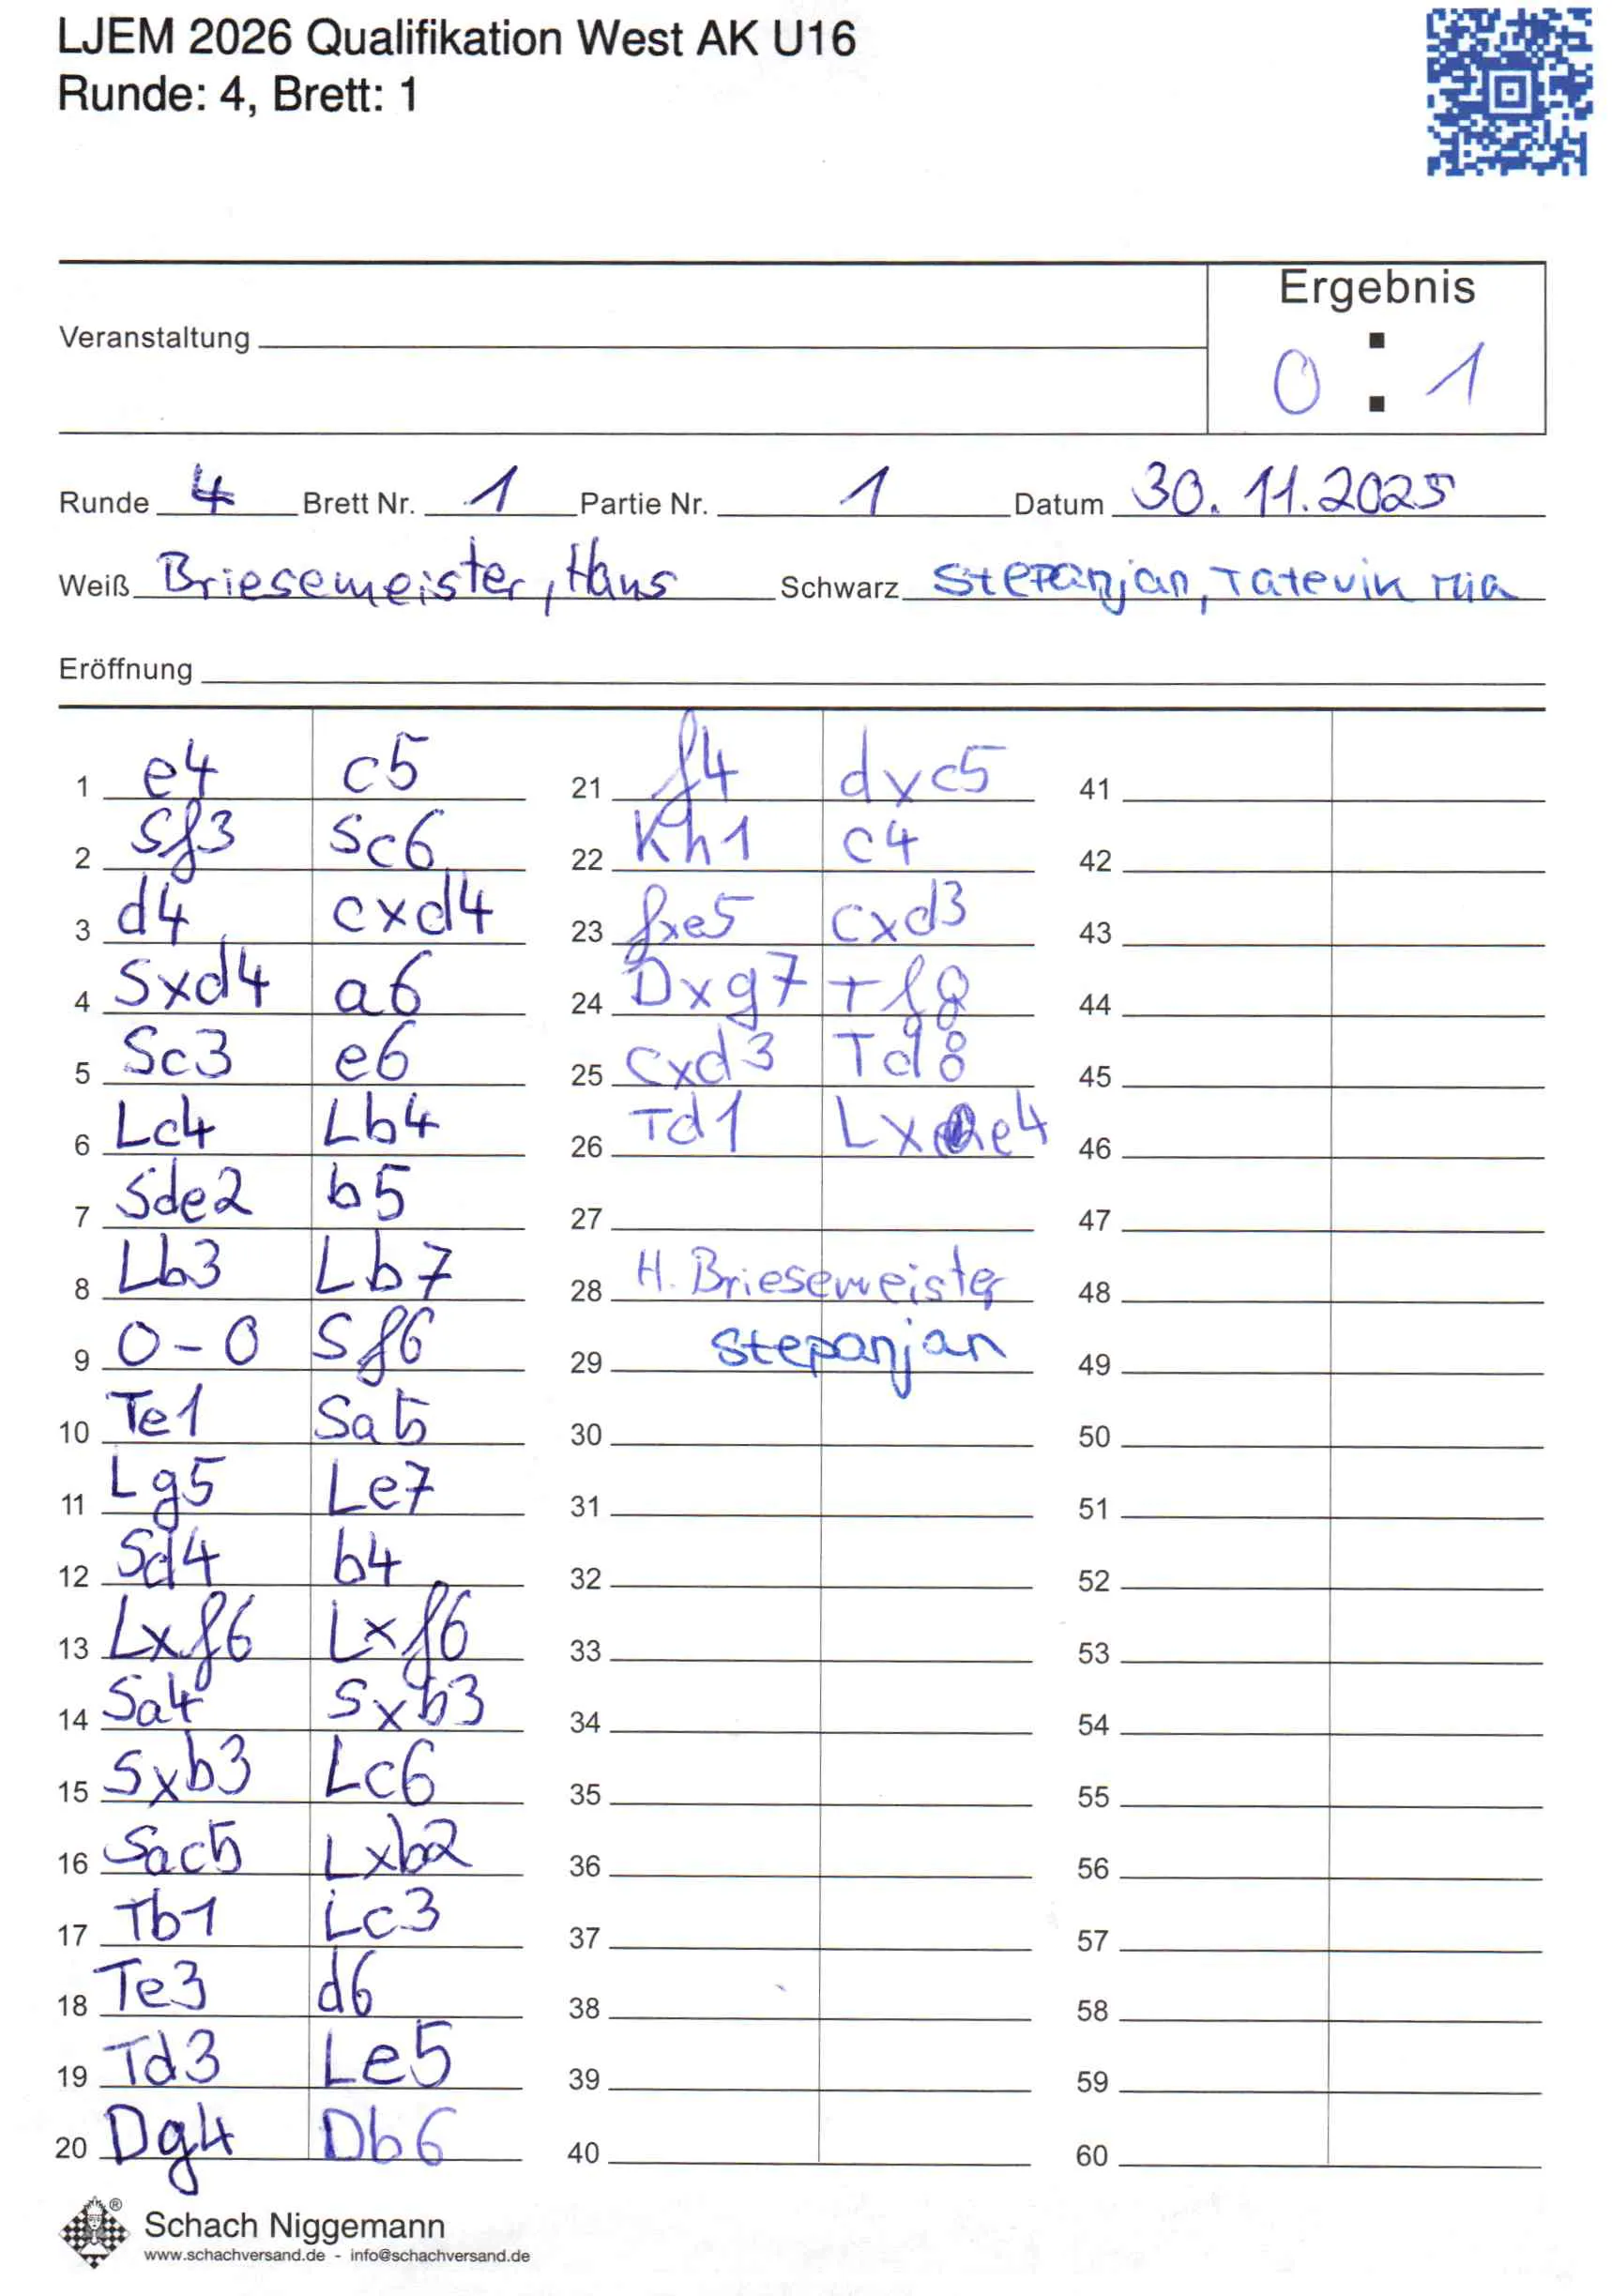 LJEM 2026 Qualifikation West AK U16
Runde: 4, Brett: 1
Ergebnis
Veranstaltung
0 : 1
Runde 4 Brett Nr. 1 Partie Nr. 1 Datum 30.11.2025
Weiß Briesemeister, Hans Schwarz Stepanjan, Tatevik Mia
Eröffnung
1 e4 c5
2 Sf3 Sc6
3 d4 cxd4
4 Sxd4 a6
5 Sc3 e6
6 Lc4 Lb4
7 Sde2 b5
8 Lb3 Lb7
9 0-0 Sf6
10 Te1 Sa5
11 Lg5 Le7
12 Sd4 b4
13 Lxf6 Lxf6
14 Sa4 Sxb3
15 Sxb3 Lc6
16 Sac5 Lxb2
17 Tb1 Lc3
18 Te3 d6
19 Td3 Le5
20 Dg4 Db6
21 f4 dxc5
22 Kh1 c4
23 fxe5 cxd3
24 Dxg7 Tf8
25 cxd3 Td8
26 Td1 Lxe4
27
28 H. Briesemeister
29 Stepanjan
30
31
32
33
34
35
36
37
38
39
40
41
42
43
44
45
46
47
48
49
50
51
52
53
54
55
56
57
58
59
60
®
Schach Niggemann
www.schachversand.de - info@schachversand.de